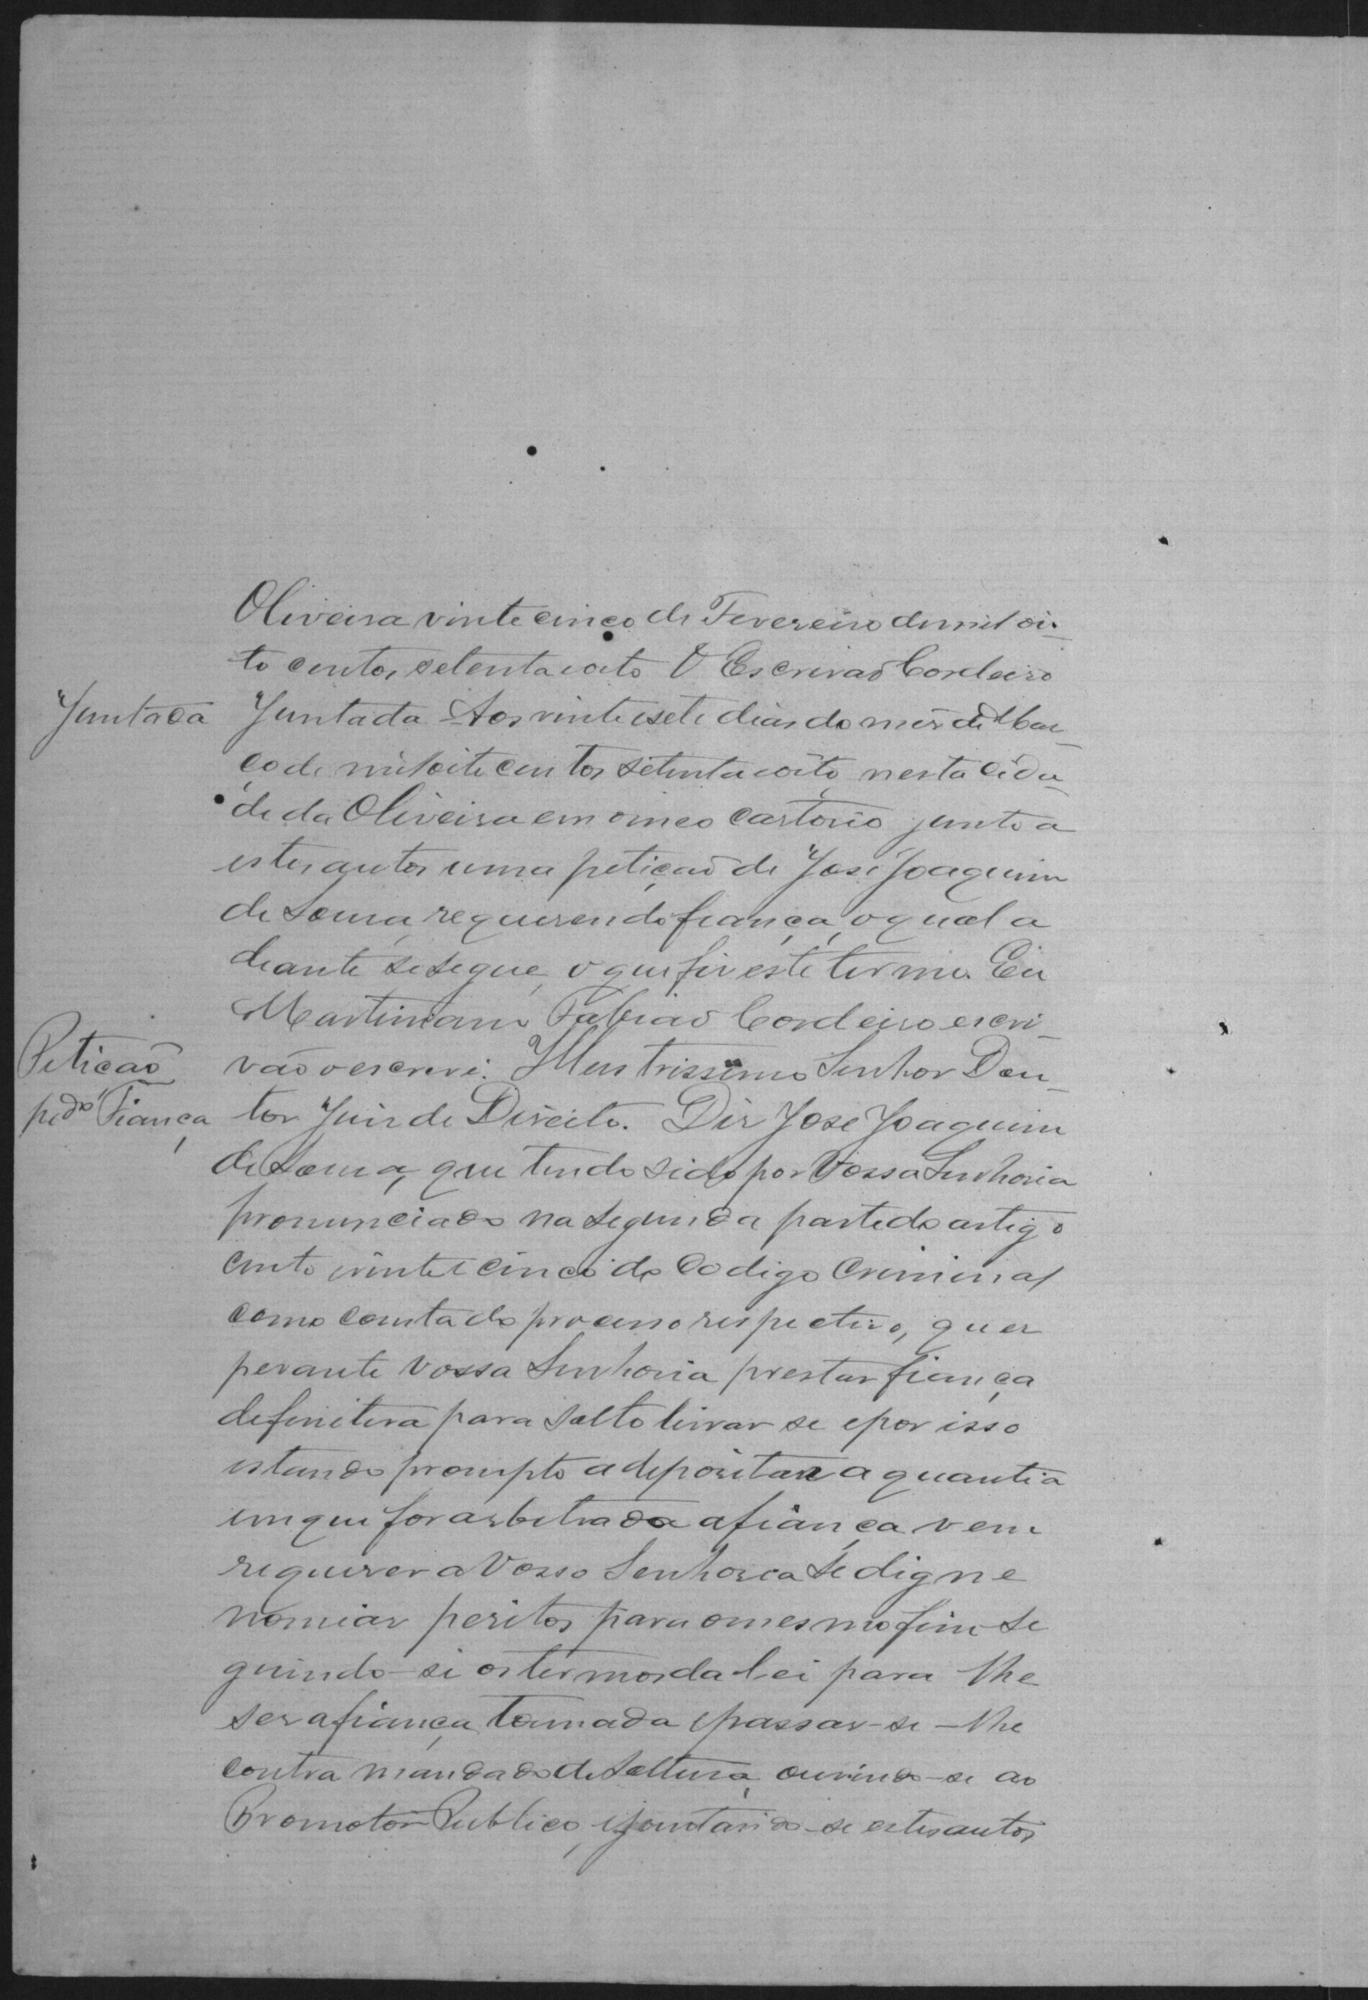 Oliveira vinte cinco de Fevereiro de mil oi-
to centos, setenta e oito O Escrivaõ Cordeiro
Juntada
Juntada Aos vinte e sete dias do mes de Mar-
ço de mil oite centos setenta e oito, nesta Cida-
de da Oliveira em o meo cartorio junto a
estes autos uma petiçaõ de José Joaquim
de Sousa, requerendo fiança, o qual a
deante se segue, o que fiz este termo. Eu
Martiniano Fabiaõ Cordeiro escri-
Petiçaõ
vão o escrevi. Illustrissimo Senhor Dou-
pedo Fiança
tor Juiz de Direito. Diz José Joaquim
de Sousa, que tendo sido por Vossa Senhoria
pronunciado na segunda parte do artigo
cento vinte e cinco do Codigo Criminal
como consta do processo respectivo, quer
perante Vossa Senhoria prestar fiança
definitiva para solto livrar se e por isso
estando prompto a depositar a quantia
em que for arbitrada a fiança vem
requerer a Vossa Senhoria se digne
nomiar peritos para o mesmo fim se
guindo-se os termos da lei para lhe
ser a fiança, tomada e passar-se-lhe
contra mandado de soltura, ouvindo-se ao
Promotor Publico, e juntando-se estes autos